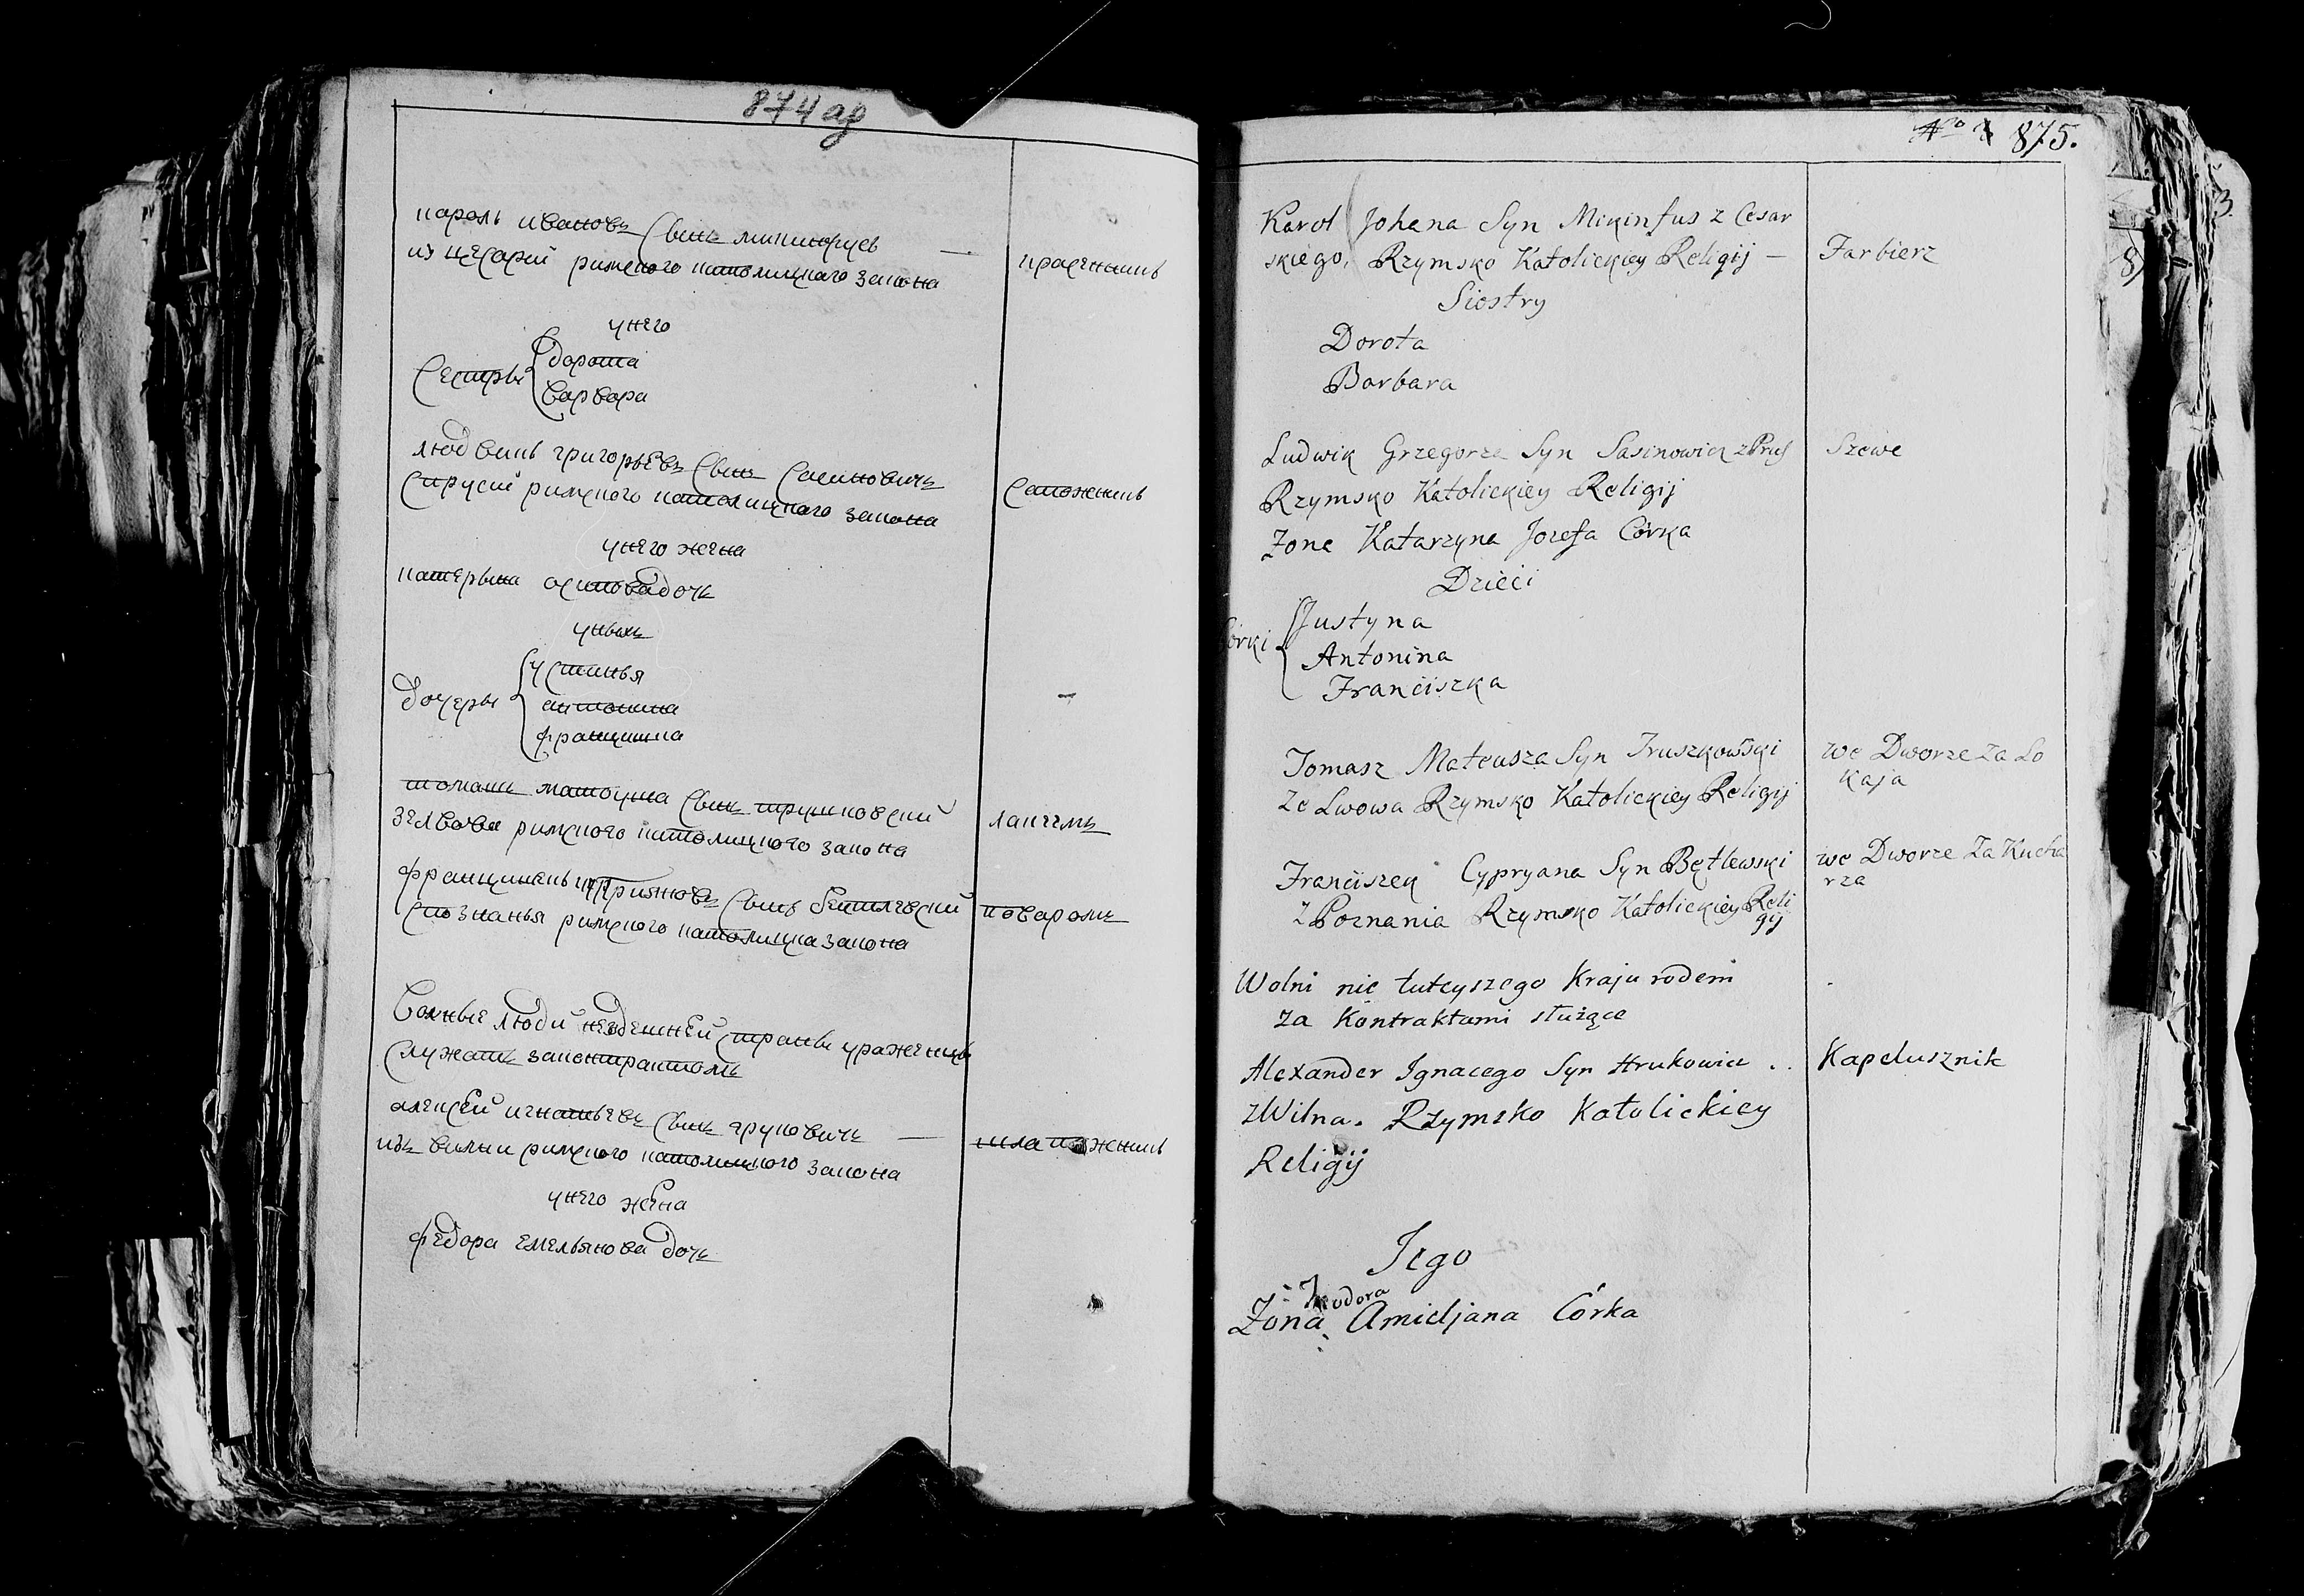 874 ag
кароль ивановъ сынъ микинфусъ —
из цесарей римского католицкаго закона
красенникъ
у него
Сестры
дорота
варвара
людвикъ григорьевъ сынъ Сасиновичъ
Спрусей римского католицкаго закона
Сапожникъ
у него жена
катерына осипова дочь
у ныхъ
дочеры
устинья
антонина
францишка
томашъ матоуша сынъ трушковский
зельвова римского католицкого закона
лакеемъ
францишекъ циприянов сынъ бентлевский
спознанья римского католицка закона
поваромъ
Волные люди нездешней страны уроженцы
Служатъ законтрактомъ
алексей игнатьевъ сынъ грукович —
изъ вильни римского католицкого закона
шлапожникъ
у него жена
федора емельянова дочь
875.
Karol Johana Syn Mikinfus z Cesar
skiego, Rzymsko Katolickiey Religij —
Farbierz
Siostry
Dorota
Barbara
Ludwik Grzegorza Syn Sasinowicz z Prus
Szewc
Rzymsko Katolickiey Religij
Zona Katarzyna Jozefa Córka
Dzieci
Córki
Justyna
Antonina
Franciszka
Tomasz Mateusza Syn Truszkowski
ze Lwowa Rzymsko Katolickiey Religij
we Dworze za Lo
kaja
Franciszek Cypryana Syn Bętlewski
z Poznania Rzymsko Katolickiey Reli
gij
we Dworze Za Kucha
rza
Wolni nie tuteyszego Kraju rodem
za Kontraktami służące
Alexander Ignacego Syn Hrukowicz ..
Kapelusznik
z Wilna. Rzymsko Katolickiey
Religij
Jego
Teodora
Żona Amieljana Córka